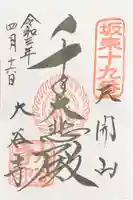 坂東十九番
天開山
千手大悲殿
令和三年
四月十一日
大谷寺